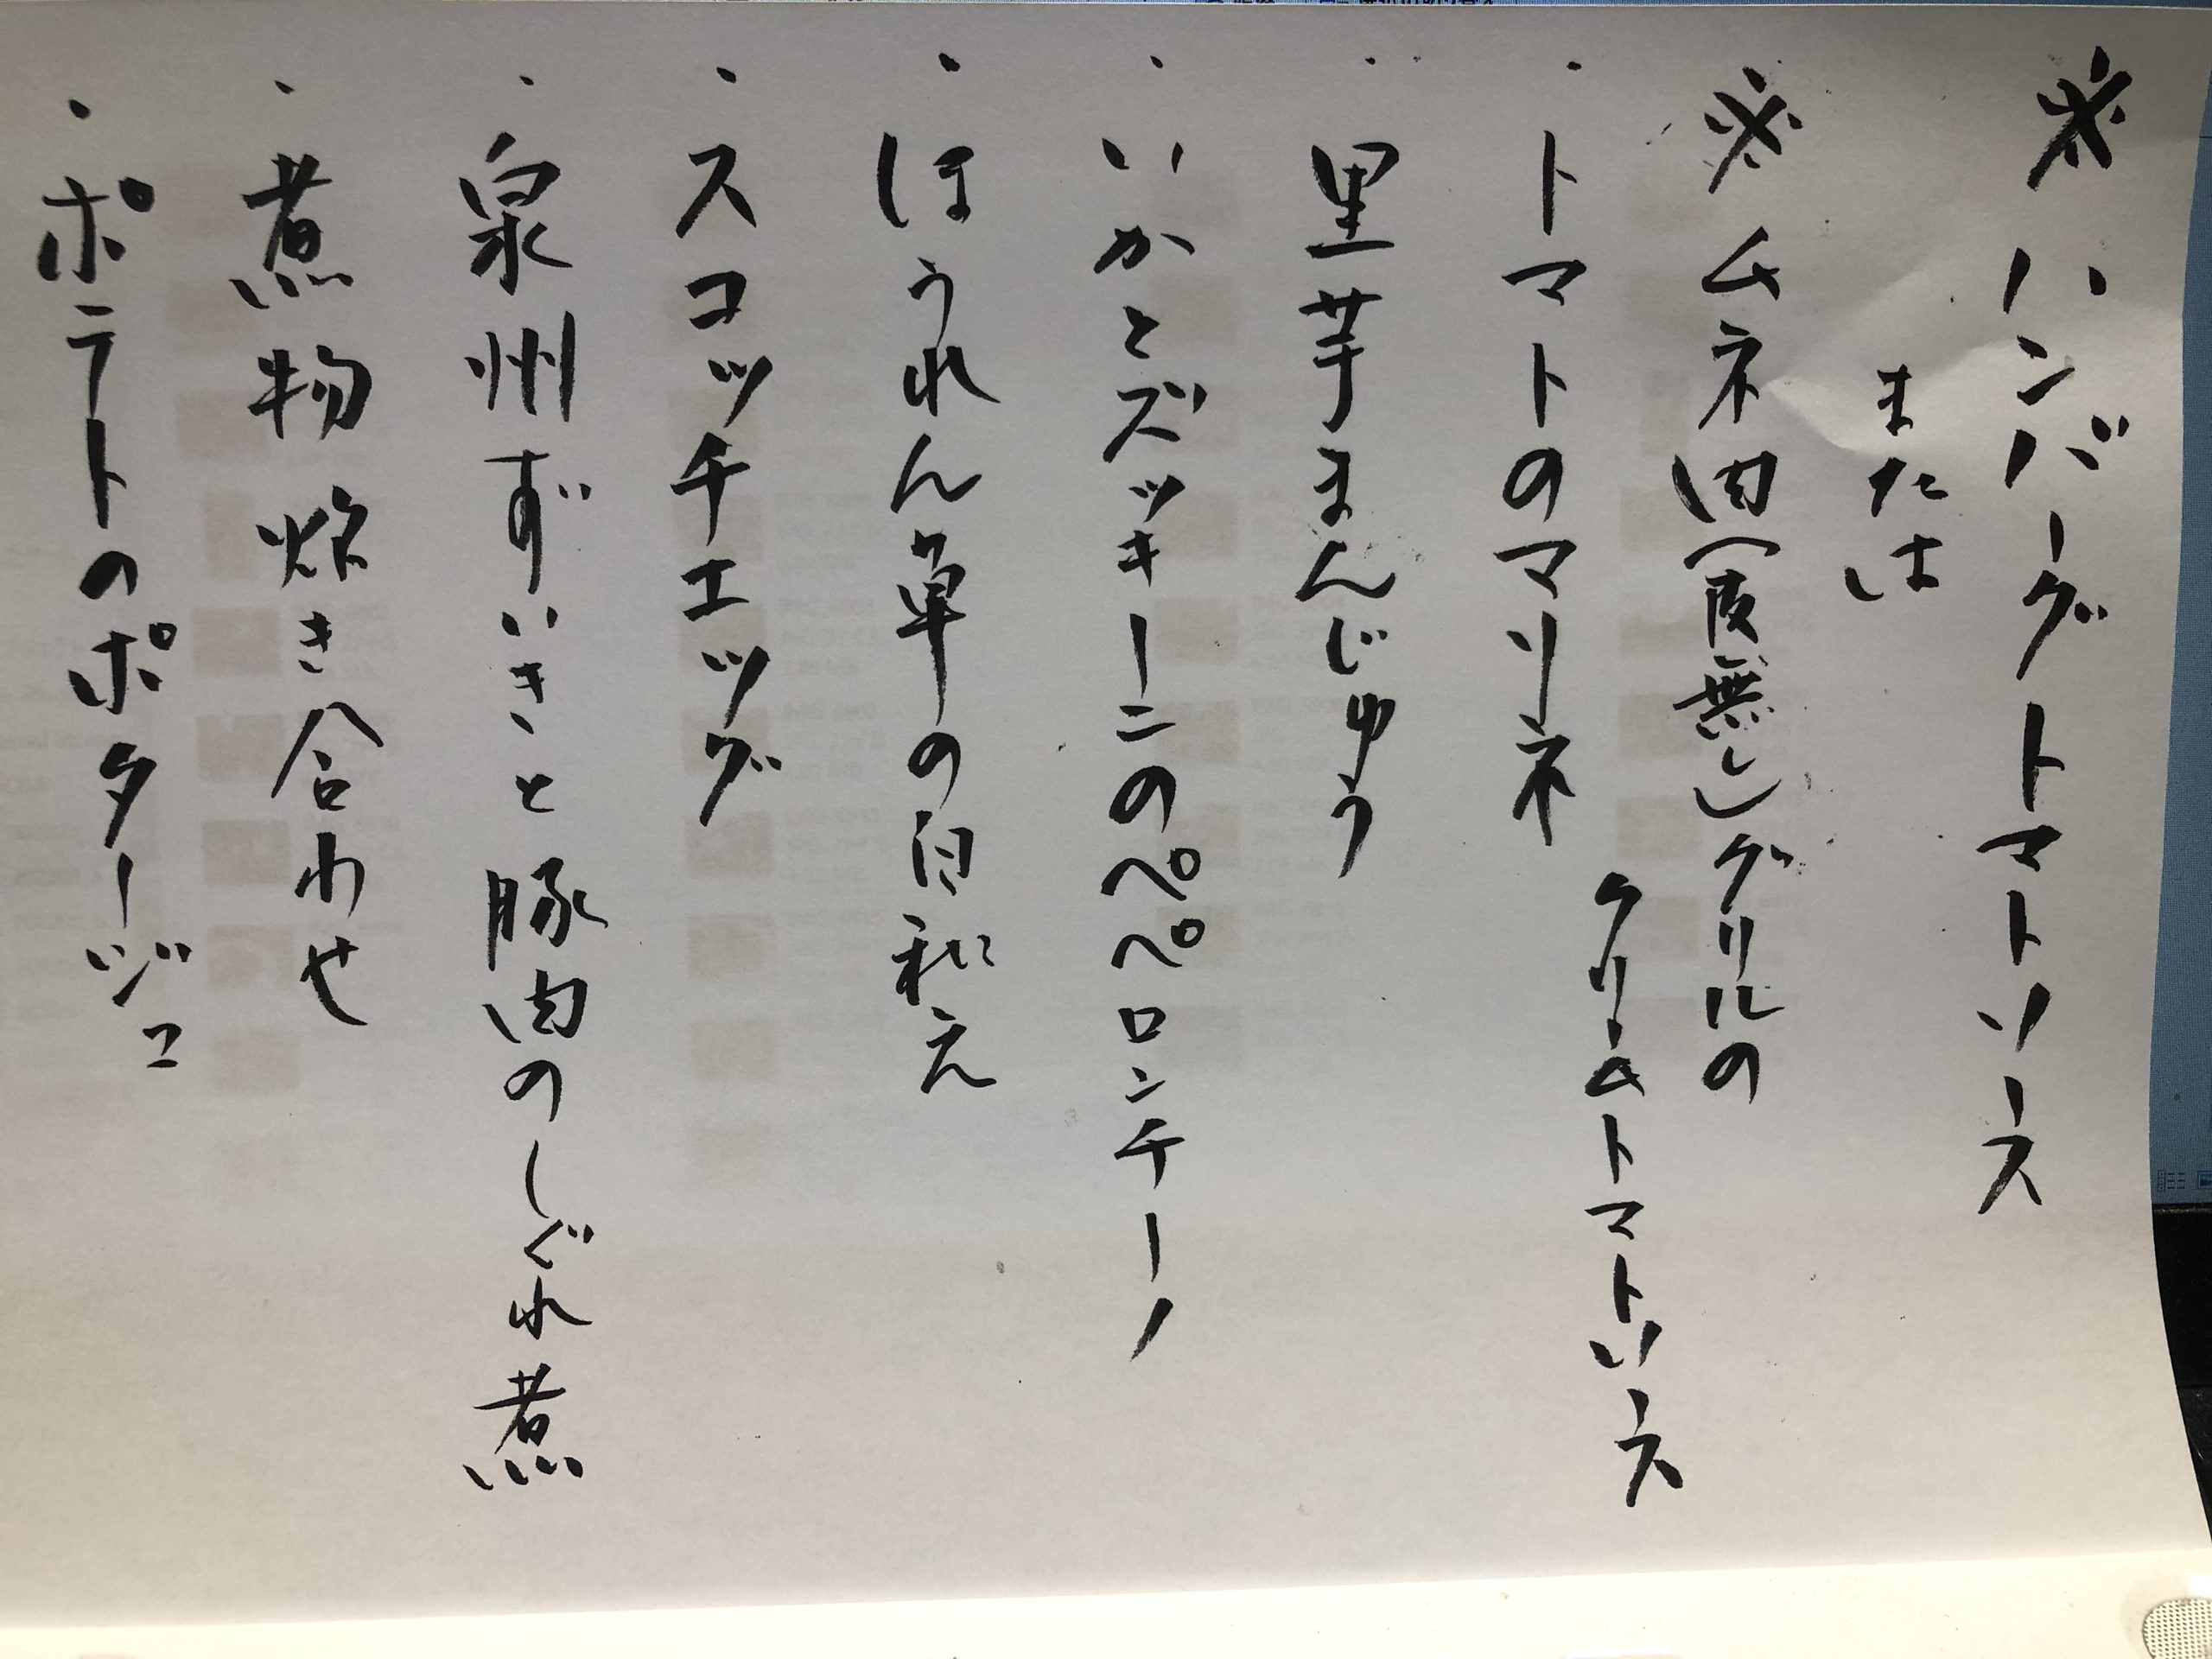 ※ハンバーグトマトソース
または
※ムネ肉(皮無し)グリルの
クリームトマトソース
・トマトのマリネ
・里芋まんじゅう
・いかとズッキーニのペペロンチーノ
・ほうれん草の白和え
・スコッチエッグ
・泉州ずいきと豚肉のしぐれ煮
・煮物炊き合わせ
・ポテトのポタージュ